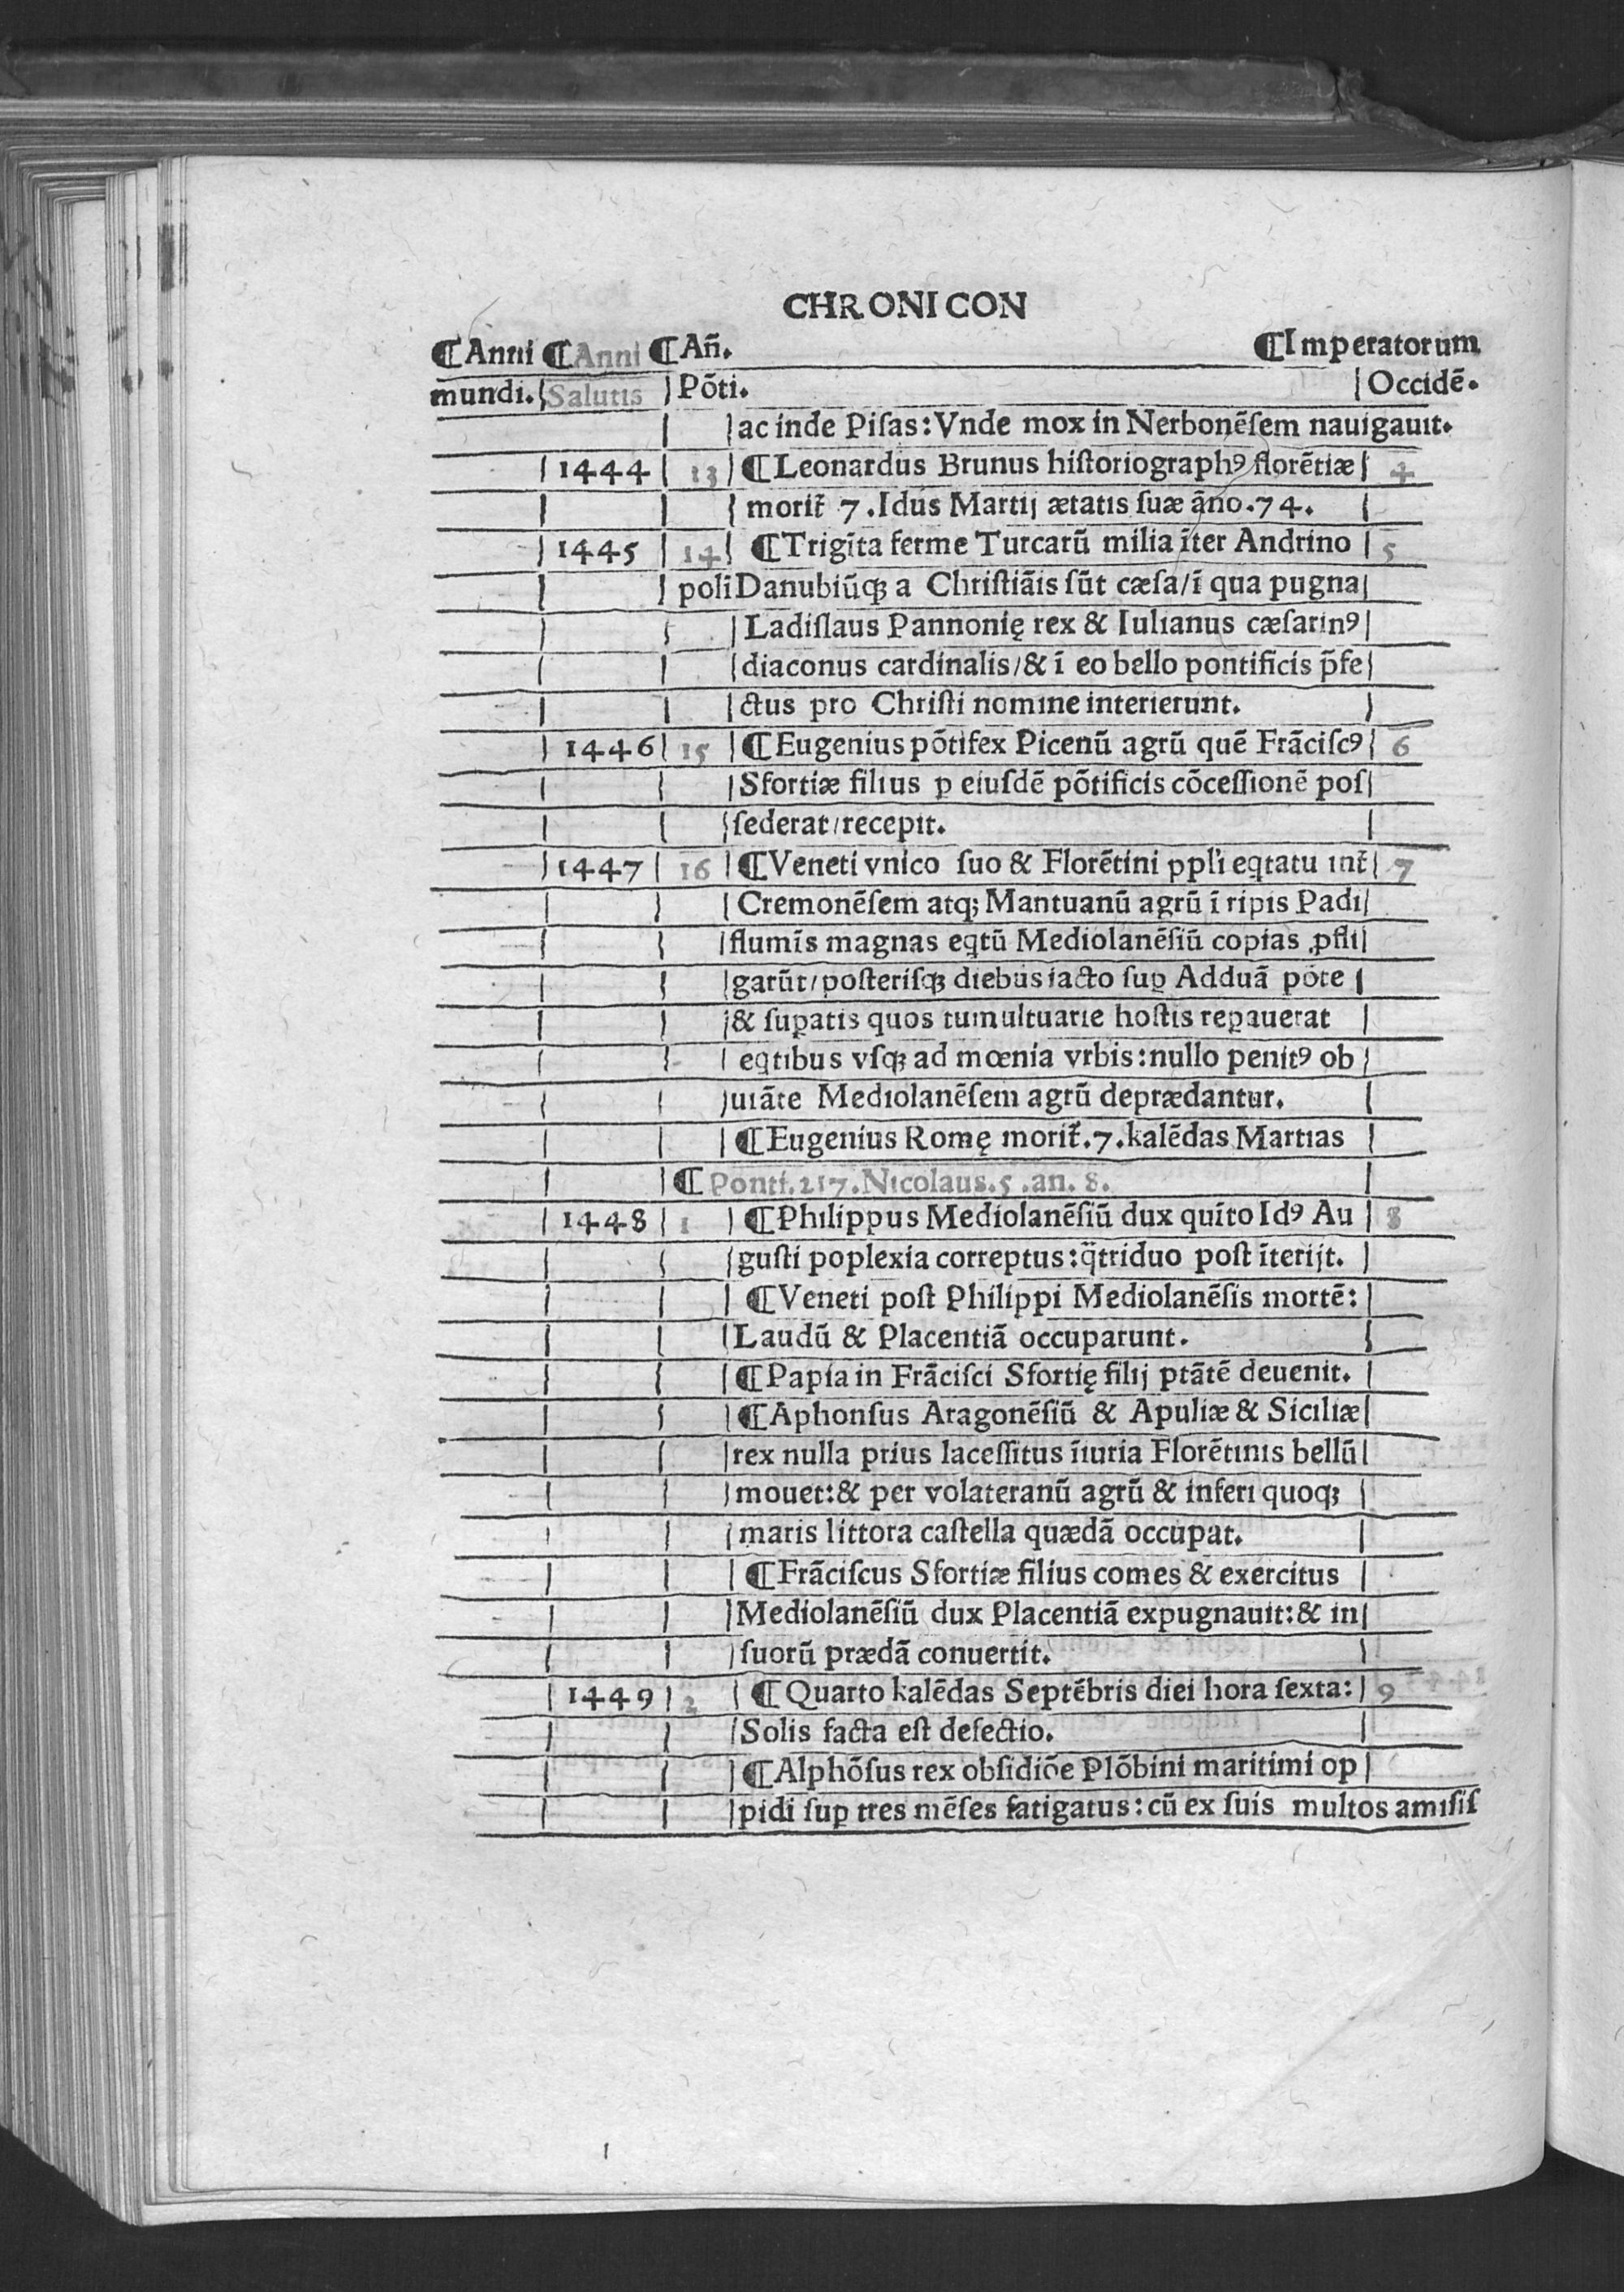 CHRONICON
¶Anni ¶Anni ¶Añ. ¶Imperatorum
mundi. Salutis Põti. Occidẽ.
ac inde Piſas: Vnde mox in Nerbonẽſem nauigauit.
1444 13 ¶Leonardus Brunus hiſtoriographꝰ florẽtiæ 4
morit᷑ 7. Idus Martij ætatis ſuæ ãno. 74.
1445 14 ¶Trigĩta ferme Turcarũ milia ĩter Andrino 5
poli Danubiũqꝫ a Chriſtiãis ſũt cæſa/ĩ qua pugna
Ladiſlaus Pannonię rex & Iulianus cæſarinꝰ
diaconus cardinalis/& ĩ eo bello pontificis p̃fe
ctus pro Chriſti nomine interierunt.
1446 15 ¶Eugenius põtifex Picenũ agrũ quẽ Frãciſcꝰ 6
Sfortiæ filius ꝑ eiuſdẽ põtificis cõceſſionẽ poſ
ſederat/recepit.
1447 16 ¶Veneti vnico ſuo & Florẽtini ppl'i eq̇tatu int᷑ 7
Cremonẽſem atqꝫ Mantuanũ agrũ ĩ ripis Padi
flumĩs magnas eq̇tũ Mediolanẽſiũ copias ꝓfli
garũt/poſteriſqꝫ diebus iacto ſuꝑ Adduã põte
& ſuꝑatis quos tumultuarie hoſtis reꝑauerat
eq̇tibus vſqꝫ ad mœnia vrbis: nullo penitꝰ ob
uiãte Mediolanẽſem agrũ deprædantur.
¶Eugenius Romę morit᷑. 7. kalẽdas Martias
¶Ponti. 217. Nicolaus. 5. an. 8.
1448 1 ¶Philippus Mediolanẽſiũ dux quĩto Idꝰ Au 8
guſti poplexia correptus: q̃triduo poſt ĩterijt.
¶Veneti poſt Philippi Mediolanẽſis mortẽ:
Laudũ & Placentiã occuparunt.
¶Papia in Frãciſci Sfortię filij ptãtẽ deuenit.
¶Aphonſus Aragonẽſiũ & Apuliæ & Siciliæ
rex nulla prius laceſſitus ĩiuria Florẽtinis bellũ
mouet: & per volateranũ agrũ & inferi quoqꝫ
maris littora caſtella quædã occupat.
¶Frãciſcus Sfortiæ filius comes & exercitus
Mediolanẽſiũ dux Placentiã expugnauit: & in
ſuorũ prædã conuertit.
1449 2 ¶Quarto kalẽdas Septẽbris diei hora ſexta: 9
Solis facta eſt defectio.
¶Alphõſus rex obſidiõe Plõbini maritimi op
pidi ſuꝑ tres mẽſes fatigatus: cũ ex ſuis multos amiſiſ